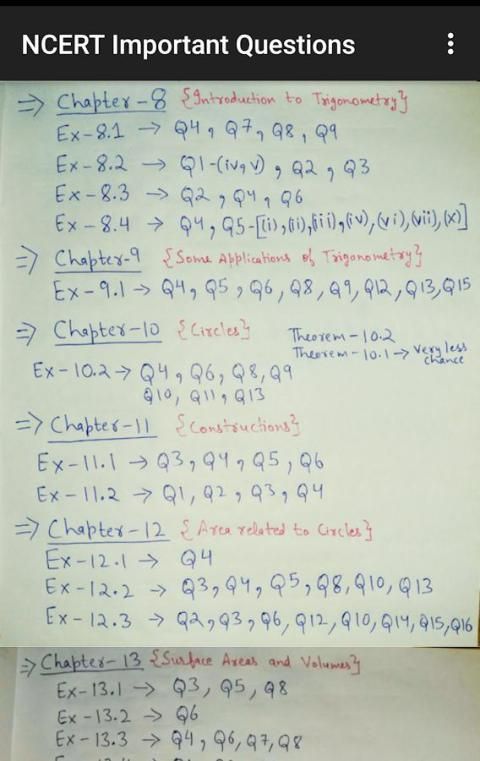 NCERT Important Questions
⇒ Chapter-8 {Introduction to Trigonometry}
Ex-8.1 → Q4, Q7, Q8, Q9
Ex-8.2 → Q1-(iv,v), Q2, Q3
Ex-8.3 → Q2, Q4, Q6
Ex-8.4 → Q4, Q5-[(i),(ii),(iii),(iv),(vi),(vii),(x)]
⇒ Chapter-9 {Some Applications of Trigonometry}
Ex-9.1 → Q4, Q5, Q6, Q8, Q9, Q12, Q13, Q15
⇒ Chapter-10 {Circles}
Theorem-10.2
Theorem-10.1 → very less chance
Ex-10.2 → Q4, Q6, Q8, Q9
Q10, Q11, Q13
⇒ Chapter-11 {Constructions}
Ex-11.1 → Q3, Q4, Q5, Q6
Ex-11.2 → Q1, Q2, Q3, Q4
⇒ Chapter-12 {Area related to Circles}
Ex-12.1 → Q4
Ex-12.2 → Q3, Q4, Q5, Q8, Q10, Q13
Ex-12.3 → Q2, Q3, Q6, Q12, Q10, Q14, Q15, Q16
⇒ Chapter-13 {Surface Areas and Volumes}
Ex-13.1 → Q3, Q5, Q8
Ex-13.2 → Q6
Ex-13.3 → Q4, Q6, Q7, Q8